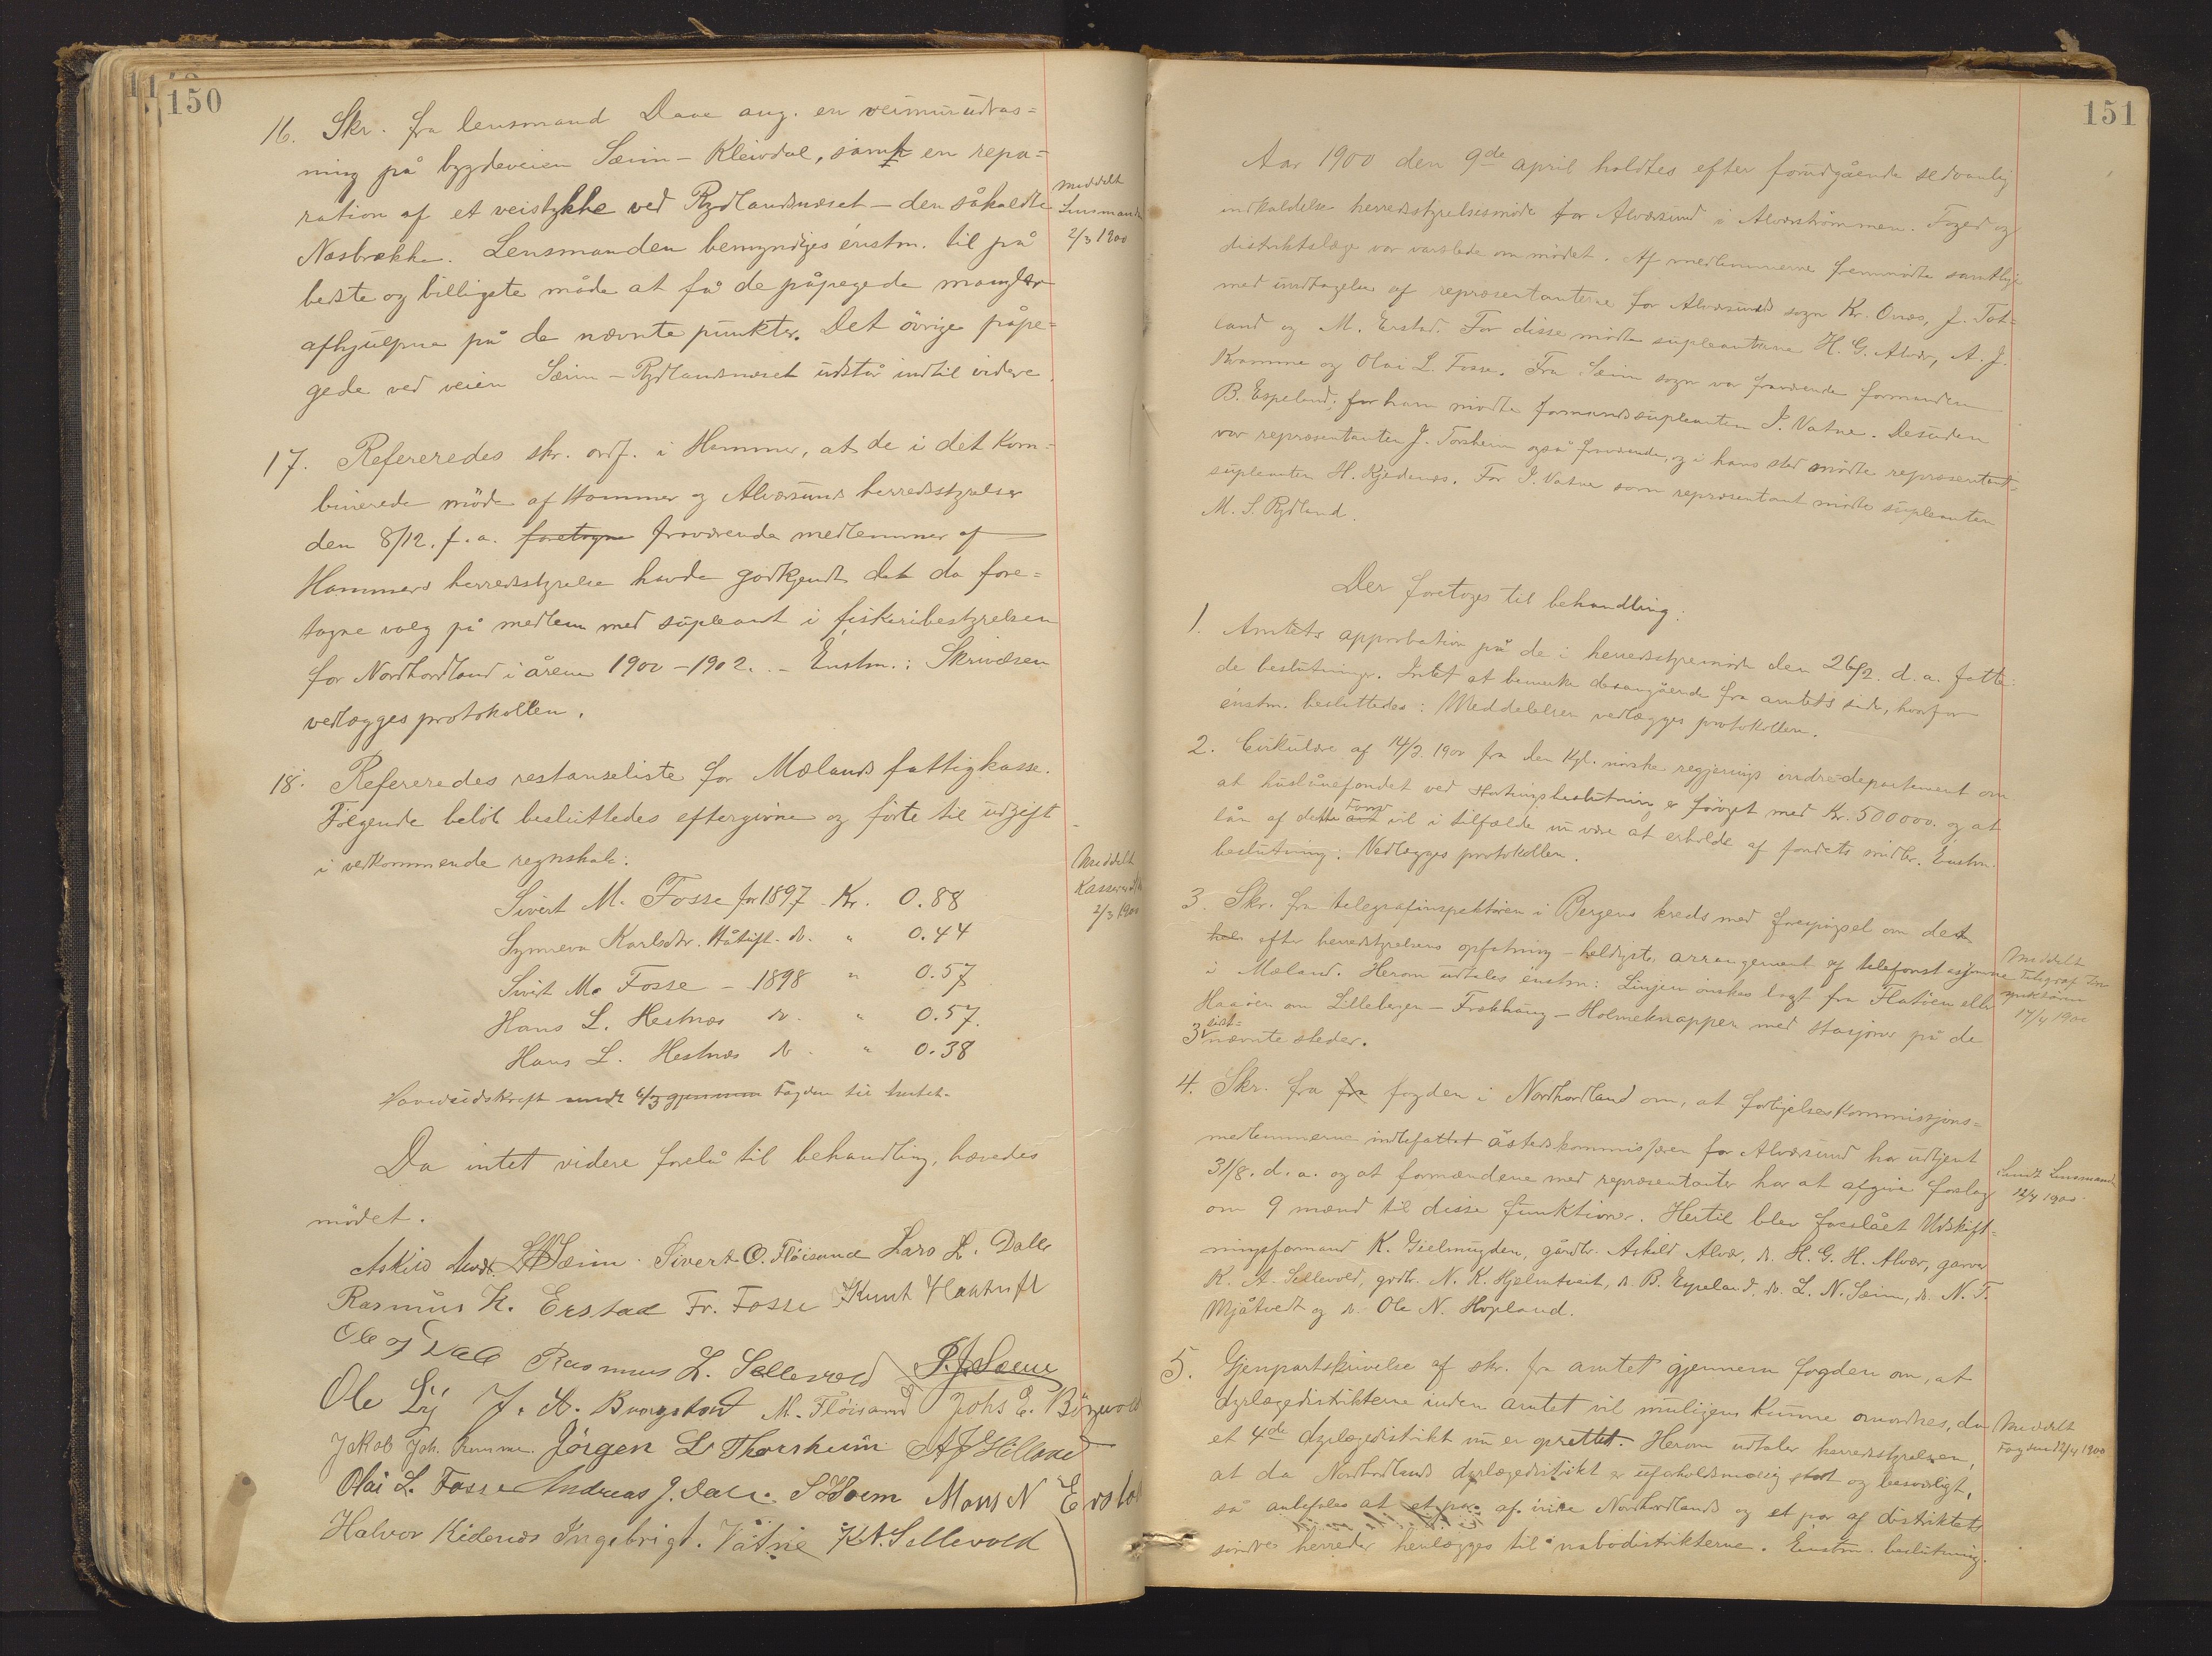 150
16. Skr. fra lensmand Daae ang. en veimurudras=
ning på bygdeveien Sæim – Kleivdal, samt en repa=
ration af et veistykke ved Rydlandsnæset – den såkaldte
Næsbrække. Lensmanden bemyndiges énstm. til på
bedste og billigste måde at få de påpegede mangler
afhjulpne på de nævnte punkter. Det övrige påpe=
gede ved veien Sæim – Rydlandsnæset udstår indtil videre.
Meddelt
Lensmanden
2/3 1900
17. Refereredes skr. ordf. i Hammer, at de i det kom=
binerede möde af Hammer og Alversund herredsstyrelser
den 8/12. f. a. foretagne fraværende medlemmer af
Hammers herredsstyrelse havde godkjendt det da fore=
tagne valg på medlem med supleant i fiskeribestyrelsen
for Nordhordland i årene 1900–1902. – Énstm.: Skrivelsen
vedlægges protokollen.
18. Refereredes restanseliste for Mælands fattigkasse.
Fölgende belöb besluttedes eftergivne og förte til udgift
i vedkommende regnskab:
Sivert M. Fosse for 1897 Kr. 0.88
Synneva Karlsdtr. Håtuft. do. " 0.44
Sivert M. Fosse – 1898 " 0.57
Hans L. Hestnæs do. " 0.57.
Hans L. Hestnæs do. " 0.38
Meddelt
Kasserer
2/3 1900
Hovedudskrift sendt 6/3 gjennem Fogden til Amtet.
Da intet videre forelå til behandling, hævedes
mödet.
Askild Alver. Sæim. Sivert O. Flöisand Lars L. Dalle
Rasmus K. Erstad Fr. Fosse Knut Haatuft
Ole O Dale Rasmus L. Sellevold P. J. Sæim
Ole Lÿ J. A. Bungstad M. Flöisand Johs E. Bögwald
Jakob Joh. Kvamme. Jörgen L Thorsheim A J Helland
Olai L. Fosse Andreas J. Dale. S Sæim Mons N Erstad
Halvor Kidenæs Ingebrigt. Vatne K A. Sellevold
151
Aar 1900 den 9de april holdtes efter forudgående sedvanlig
indkaldelse herredsstyrelsesmöde for Alversund i Alverströmmen. Foged og
distriktslæge var varslede om mödet. Af medlemmerne fremmödte samtlige
med undtagelse af repræsentanterne for Alversunds sogn Kr. Onæs, J. Tot=
land og M. Erstad. For disse mödte supleanterne H. G. Alver, A. J.
Kvamme og Olai L. Fosse. Fra Sæim sogn var fraværende formanden
B. Espeland; for ham mödte formandssupleanten I. Vatne. Desuden
var repræsentanten J. Torsheim også fraværende, og i hans sted mödte repræsentant=
supleanten H. Kjedenæs. For I. Vatne som repræsentant mödte supleanten
M. S. Rydland.
Der foretoges til behandling:
1. Amtets approbation på de i herredsstyremöde den 26/2. d. a. fatte=
de beslutninger. Intet at bemerke desangående fra amtets side, hvorfor
énstm. besluttedes: Meddelelsen vedlægges protokollen.
2. Cirkulære af 14/3 1900 fra den Kgl. norske regjerings indredepartement om
at huslånefondet ved stortingsbeslutning er foröget med Kr. 500000. og at
lån af dette fond vil i tilfælde nu være at erholde af fondets midler. Enstm.
beslutning: Vedlægges protokollen.
3. Skr. fra telegrafinspektören i Bergens kreds med forespörgsel om det
efter herredsstyrelsens opfatning – heldigste arrangement af telefonstasjonene
i Mæland. Herom udtales énstm: Linjen önskes lagt fra Flatöen eller
Haaöen om Lillebergen – Frekhaug – Holmeknappen med stasjoner på de
3 sidst=nævnte steder.
Meddelt
Telegraf In
spektören
17/4 1900
4. Skr. fra fra fogden i Nordhordland om, at forligelseskommissjons=
medlemmerne indbefattet åstedskommissæren for Alversund har udtjent
31/8. d. a. og at formændene med repræsentanter har at afgive forslag
om 9 mænd til disse funktioner. Hertil blev foreslået Udskift=
ningsformand K. Gielmugden, gårdbr. Askild Alver, do. H. G. H. Alver, garver
K. A. Sellevold, grdbr. N. K. Hjelmtveit, do. B. Espeland, do. L. N. Sæim, do. N. T.
Mjåtvedt og do. Ole N. Hopland.
Sendt Lensmand
12/4 1900
5. Gjenpartskrivelse af skr. fra amtet gjennem fogden om, at
dyrlægedistrikterne inden amtet vil muligens kunne omordnes, da
et 4de dyrlægedistrikt nu er oprettet. Herom udtaler herredsstyrelsen,
at da Nordhordlands dyrlægedistrikt er uforholdsmæsig stort og besværligt,
så anbefales at et par af indre Nordhordlands og et par af distriktets
söndre herreder henlægges til nabodistrikterne. Enstm. beslutning.
Meddelt
Fogden 12/4 1900